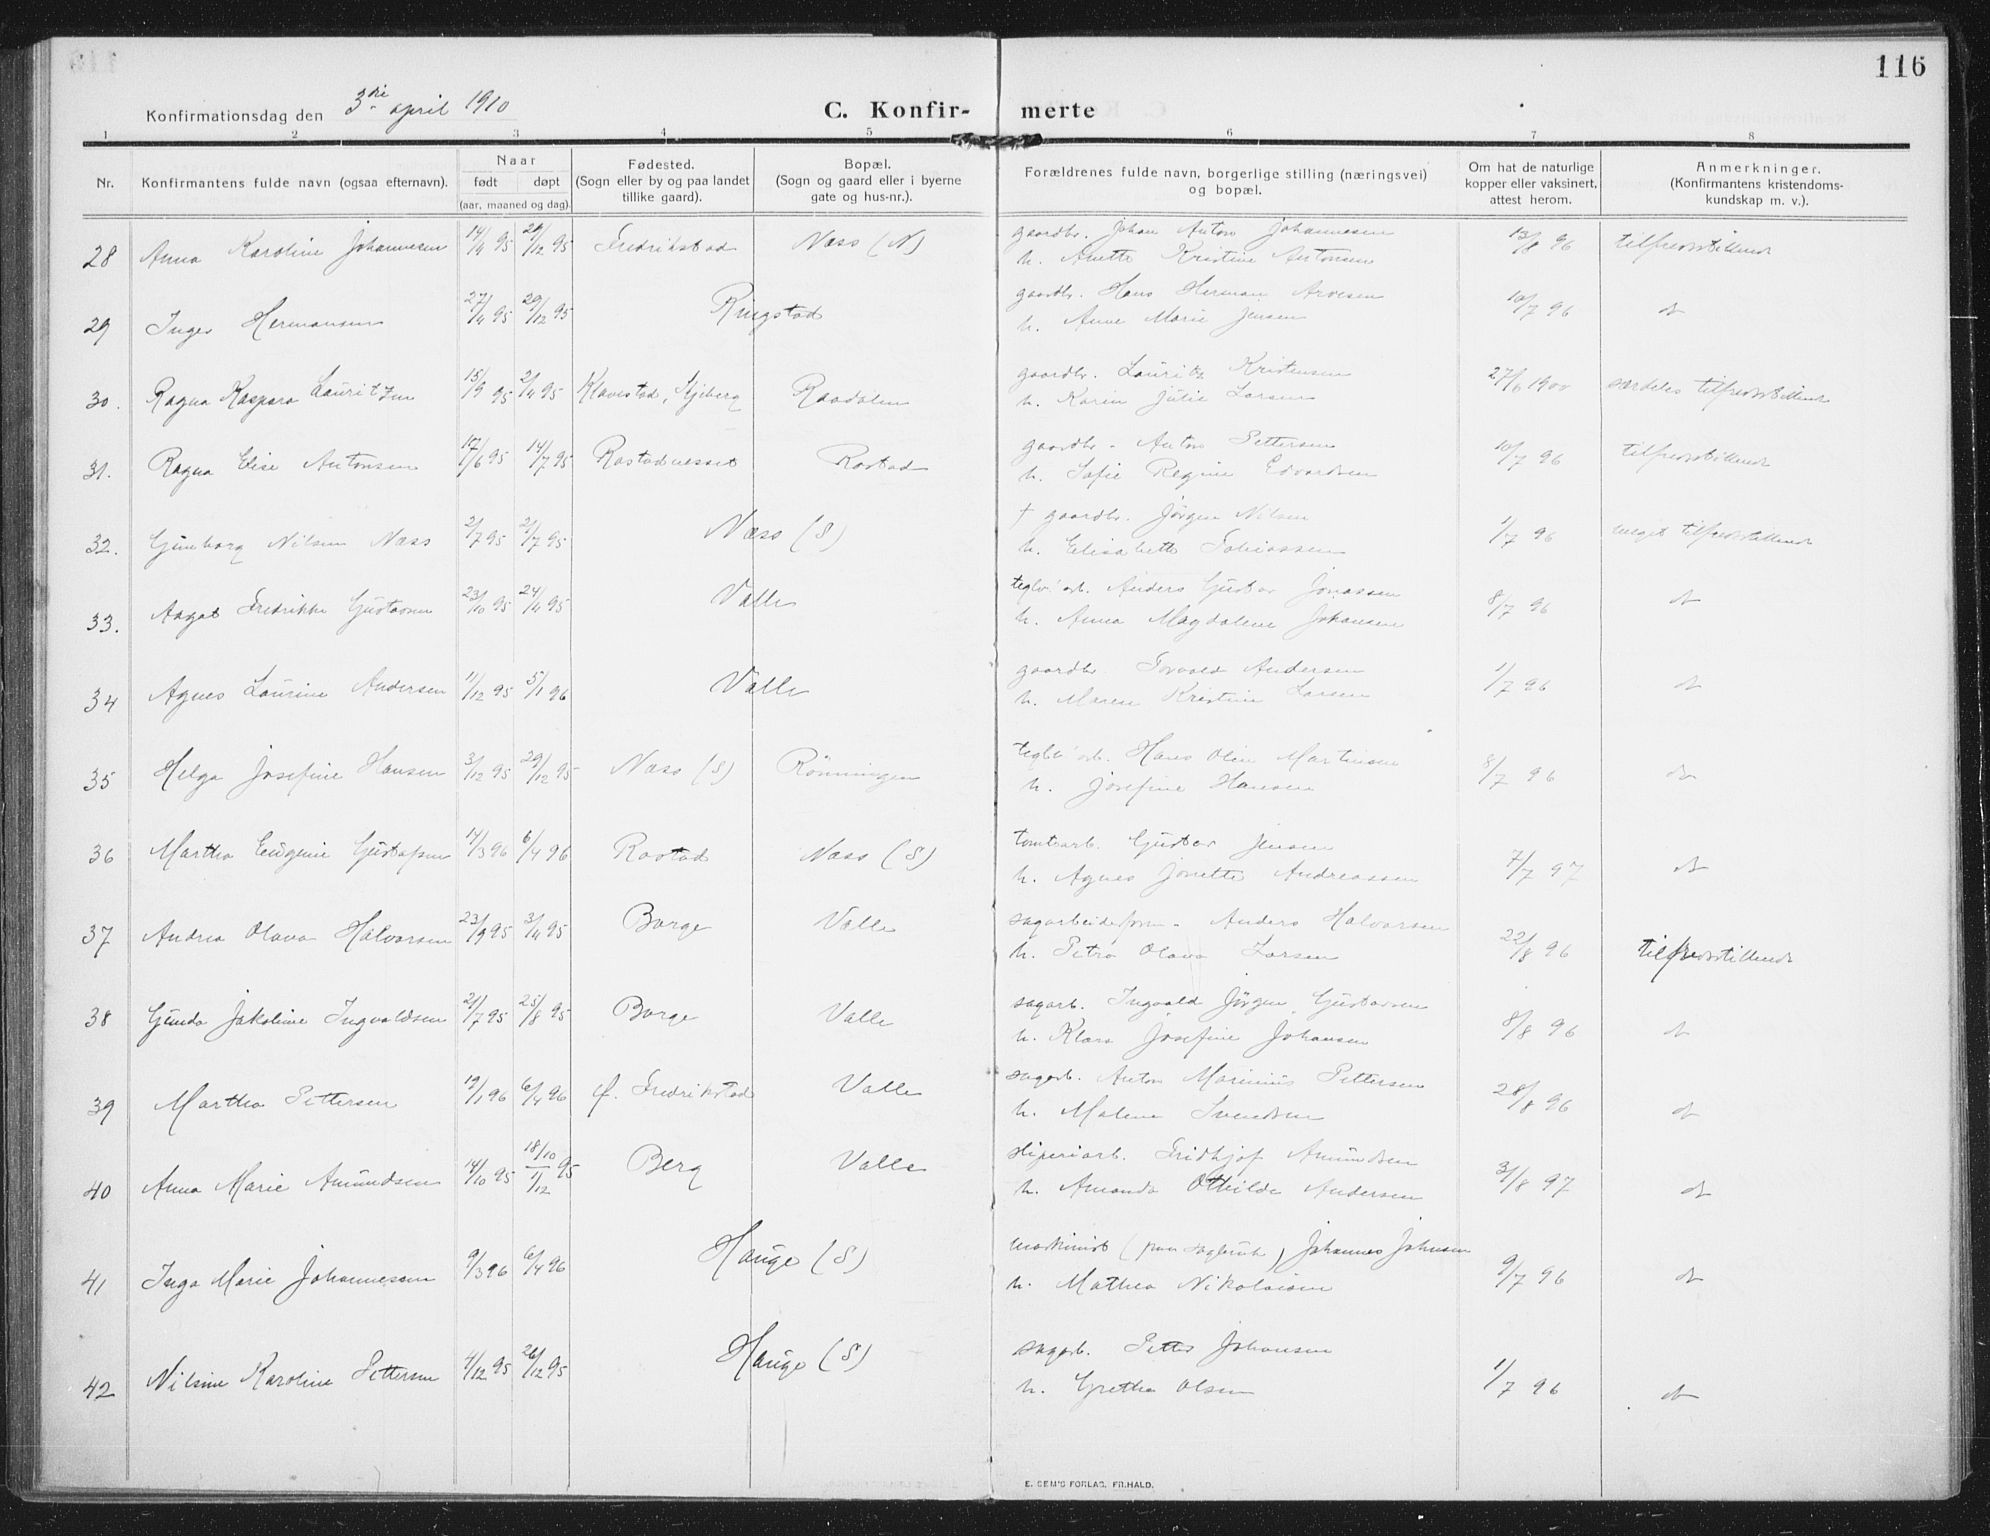 116
Konfirmationsdag den 3die april 1910
C. Konfir- merte
1 2 3 4 5 6 7 8
Nr. Konfirmantens fulde navn (ogsaa efternavn). Naar født døpt (aar, maaned og dag). Fødested. (Sogn eller by og paa landet tillike gaard). Bopæl. (Sogn og gaard eller i byerne gate og hus-nr.). Forældrenes fulde navn, borgerlige stilling (næringsvei) og bopæl. Om hat de naturlige kopper eller vaksinert, attest herom. Anmerkninger. (Konfirmantens kristendoms- kundskap m. v.).
28 Anna Karoline Johannesen 14/4 95 29/12 95 Fredrikstad Næss (N) gaardbr. Johan Anton Johannesen 13/8 96 tilfredsstillende
h. Anette Kristine Antonsen
29 Inger Hermansen 27/4 95 29/12 95 Ringstad gaardbr. Hans Herman Arvesen 10/7 96 do
h. Anne Marie Jensen
30. Ragna Kaspara Lauritzen 15/9 95 2/4 95 Klavestad, Skjeberg Raadalen gaardbr. Lauritz Kristensen 27/6 1900 særdeles tilfredsstillende
h. Karin Julie Larsen
31. Ragna Elise Antonsen 17/6 95 14/7 95 Rostadnesset Rostad gaardbr. Anton Pettersen 10/7 96 tilfredsstillende
h. Sofie Regine Edvardsen
32. Gunborg Nilsen Næss 2/7 95 21/7 95 Næss (S) † gaardbr. Jörgen Nilsen 1/7 96 meget tilfredsstillende
h. Elisabeth Tobiassen
33. Aagot Fredrikke Gustavsen 23/10 95 24/11 95 Valle teglv.arb. Anders Gustav Jonassen 8/7 96 do
h. Anna Magdalene Johansen
34 Agnes Laurine Andersen 11/12 95 5/1 96 Valle gaardbr. Torvald Andersen 1/7 96 do
h. Maren Kristine Larsen
35 Helga Josefine Hansen 3/12 95 29/12 95 Næss (S) Rönningen Hans Olin Martinsen 8/7 96 do
h. Josefine Hansen
36 Martha Eugenie Gustafsen 14/3 96 6/4 96 Rostad Næss (S) tomtearb. Gustav Jensen 7/7 97 do
h. Agnes Jonette Andreassen
37 Andrea Olava Halvorsen 23/9 95 3/11 95 Borge Valle Anders Halvorsen 22/8 96 tilfredsstillende
h. Petra Olava Larsen
38 Gunda Jakobine Ingvaldsen 21/7 95 25/8 95 Borge Valle sagarb. Ingvald Jörgen Gustavsen 8/8 96 do
h. Klara Josefine Johansen
39 Martha Pettersen 19/1 96 6/4 96 Ø. Fredrikstad Valle sagarb. Anton Marinius Pettersen 28/8 96 do
h. Malene Svendsen
40 Anna Marie Amundsen 14/10 95 18/10 1/12 95 Berg Valle sliperiarb. Fridhjof Amundsen 31/8 97 do
h. Amanda Othilde Andersen
41 Inga Marie Johannesen 9/3 96 6/4 96 Hauge (S) maskinist (paa sagbruk) Johannes Johnsen 9/7 96 do
h. Mathea Nikolaisen
42 Nilsine Karoline Pettersen 4/12 95 26/12 95 Hauge (S) sagarb. Petter Johansen 1/7 96 do
h. Grethe Olsen
E. SEM'S FORLAG, FR.HALD.